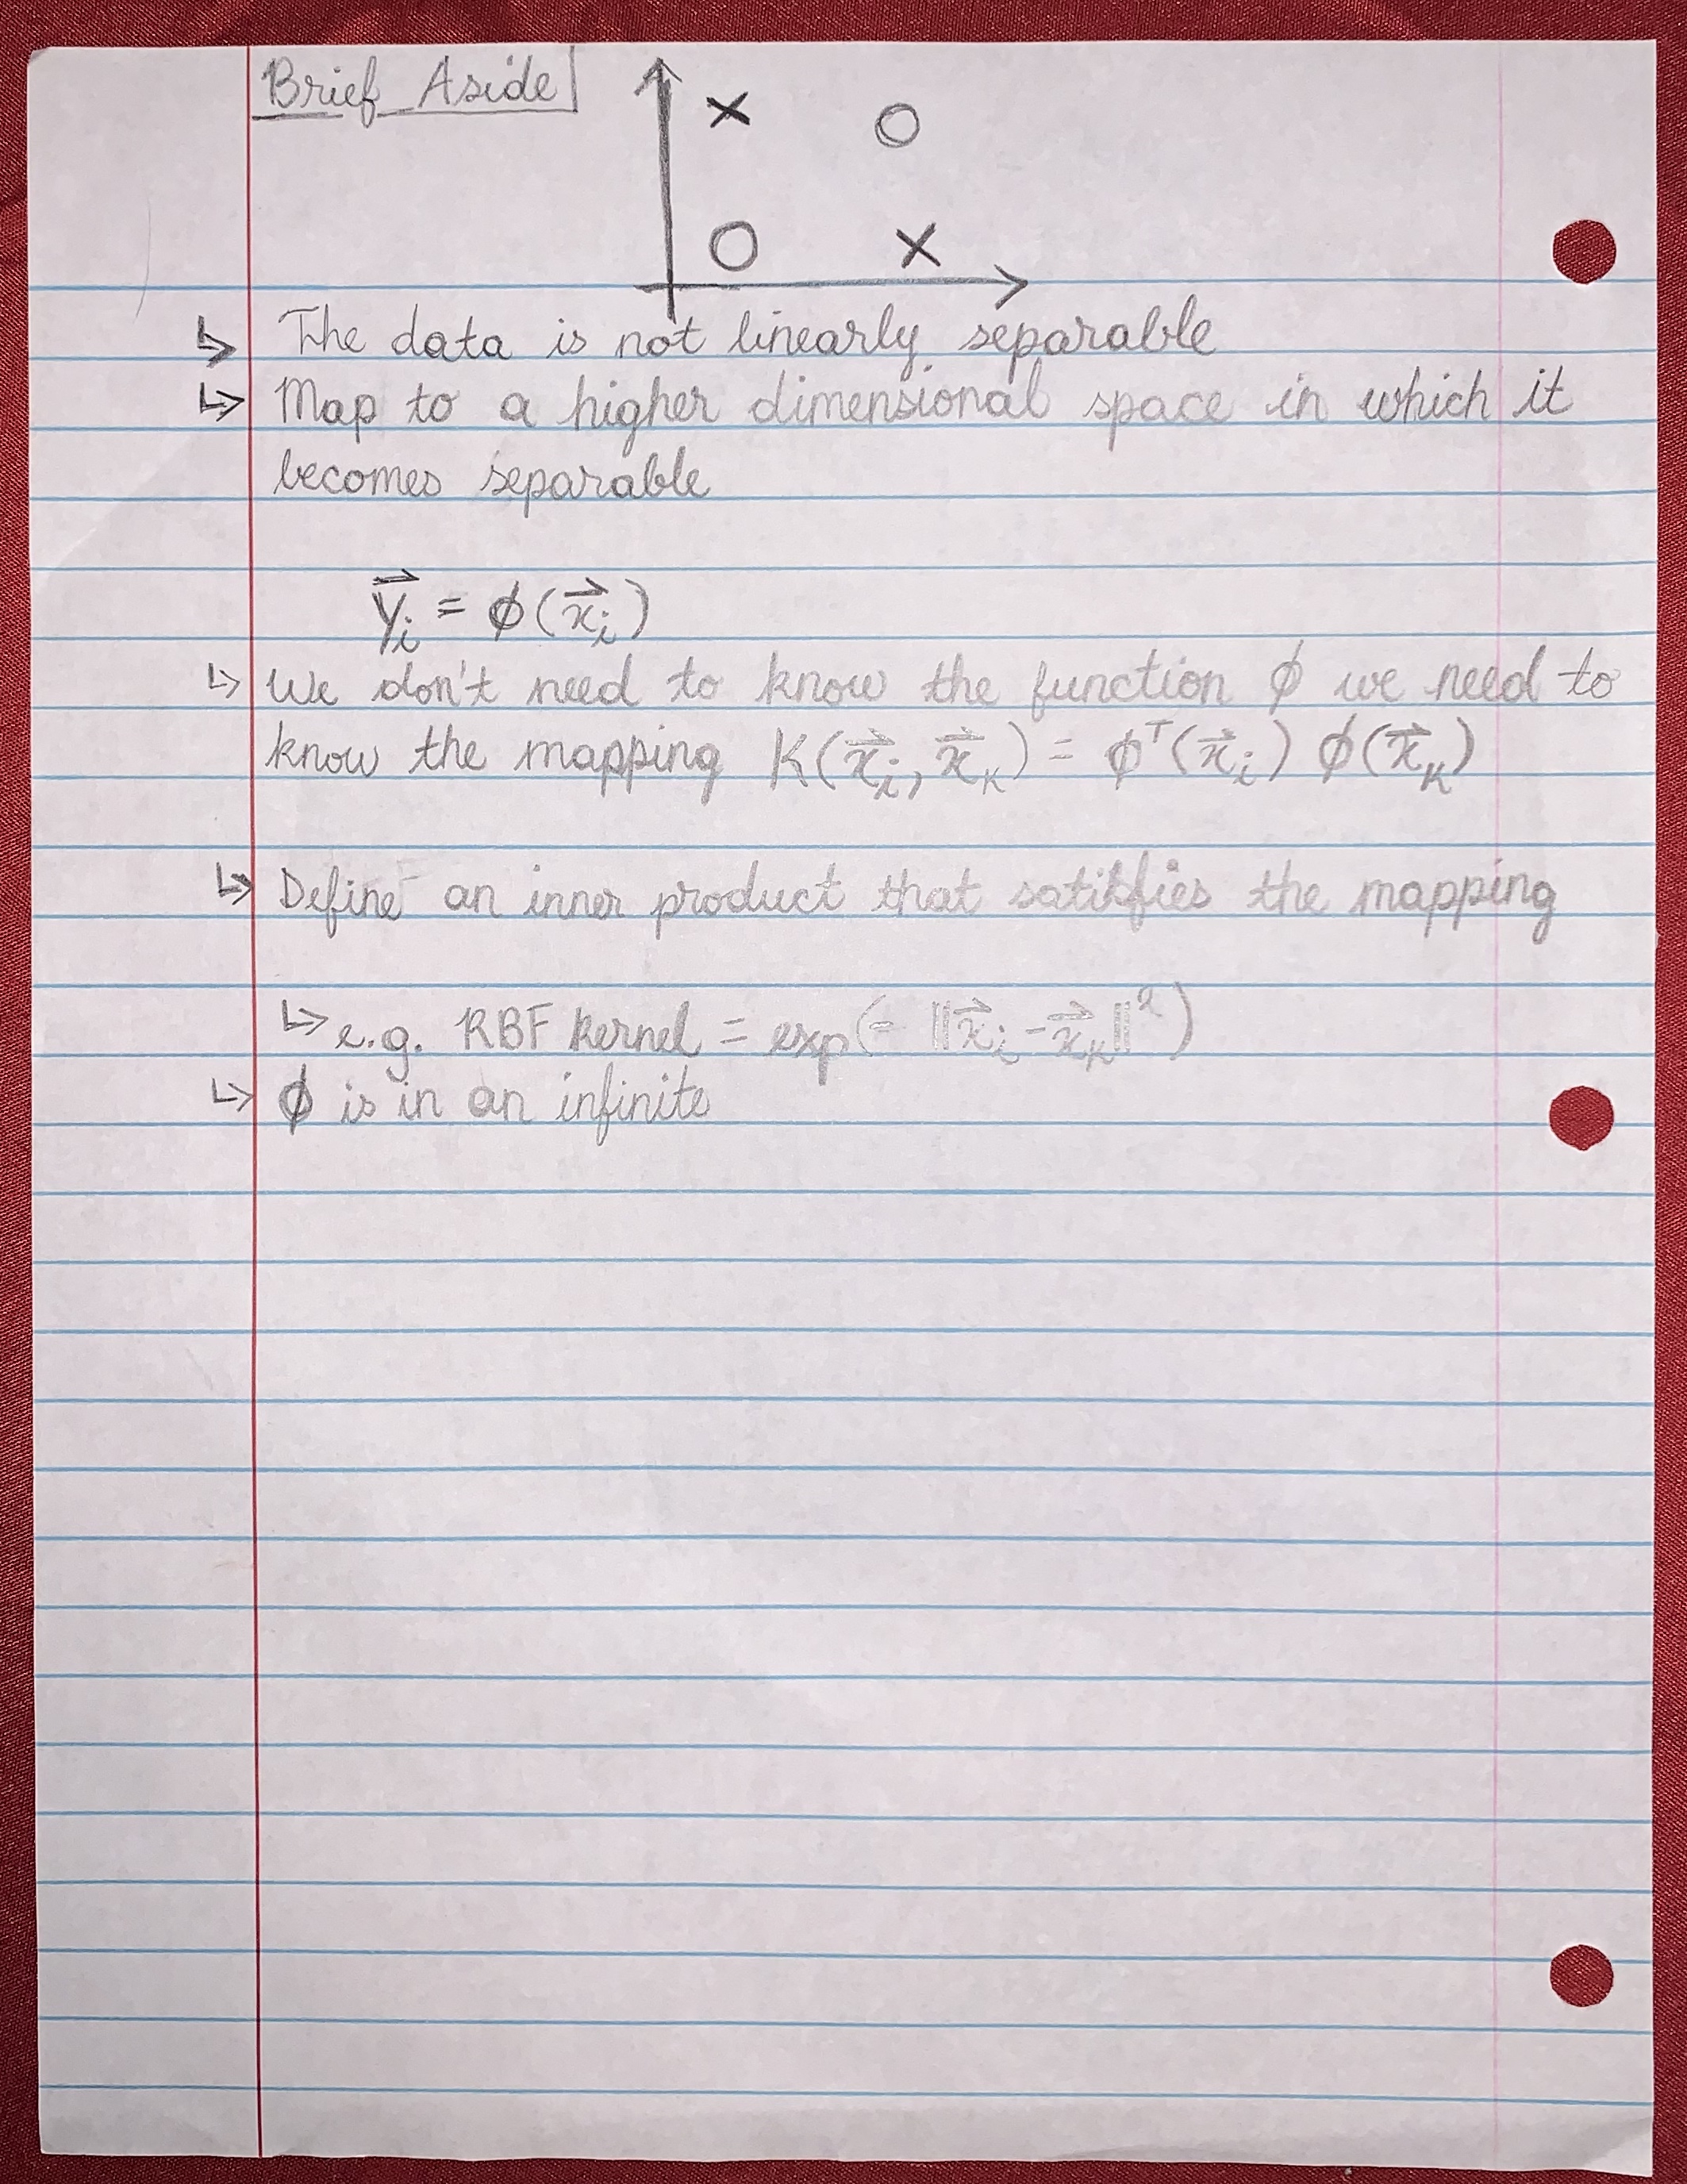 Brief Aside
The data is not linearly separable
Map to a higher dimensional space in which it
becomes separable
y⃗ᵢ = ϕ(x⃗ᵢ)
We don't need to know the function ϕ we need to
know the mapping K(x⃗ᵢ, x⃗ₖ) = ϕᵀ(x⃗ᵢ) ϕ(x⃗ₖ)
Define an inner product that satisfies the mapping
e.g. RBF kernel = exp(- ||x⃗ᵢ - x⃗ₖ||²)
ϕ is in an infinite